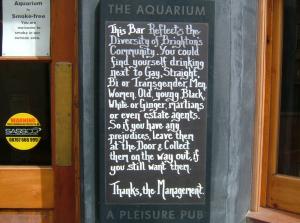 Aquarium
is
Smoke-free
You are
welcome to
smoke in our
THE AQUARIUM
This Bar Reflects the
Diversity of Brighton's
Community. You could
find yourself drinking
next to Gay, Straight,
Bi or Transgender, Men,
Women, Old, young, Black,
White or Ginger, martians
or even estate agents.
So if you have any
prejudices, leave them
at the Door & Collect
them on the way out, if
you still want them.
Thanks, the Management.
A PLEISURE PUB
WARNING
SASSCO